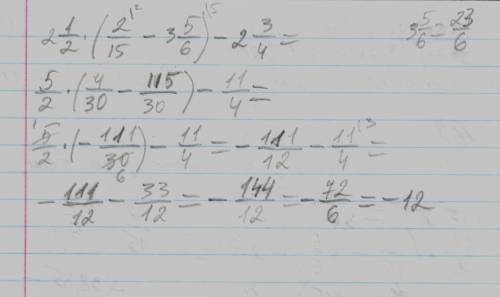 2 1/2 · (2/15 - 3 5/6) - 2 3/4 = 3 5/6 = 23/6
5/2 · (4/30 - 115/30) - 11/4 =
5/2 · (- 111/30) - 11/4 = - 111/12 - 11/4 =
- 111/12 - 33/12 = - 144/12 = - 72/6 = - 12